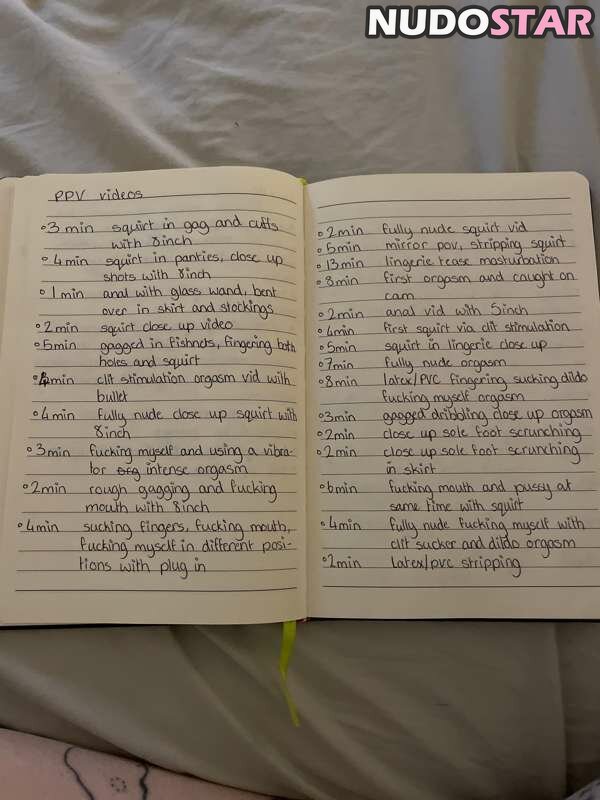 NUDOSTAR
PPV videos
3 min squirt in gag and cuffs
with 8inch
4min squirt in panties, close up
shots with 8inch
1min anal with glass wand, bent
over in skirt and stockings
2min squirt close up video
5min gagged in fishnets, fingering both
holes and squirt
4min clit stimulation orgasm vid with
bullet
4min fully nude close up squirt with
8inch
3min fucking myself and using a vibra-
tor intense orgasm
2min rough gagging and fucking
mouth with 8inch
4min sucking fingers, fucking mouth,
fucking myself in different posi-
tions with plug in
2min fully nude squirt vid
5min mirror pov, stripping squirt
13min lingerie tease masturbation
8min first orgasm and caught on
cam
2min anal vid with 5inch
4min first squirt via clit stimulation
5min squirt in lingerie close up
7min fully nude orgasm
8min latex/PVC fingering sucking dildo
fucking myself orgasm
3min gagged dribbling close up orgasm
2min close up sole foot scrunching
2min close up sole foot scrunching
in skirt
6min fucking mouth and pussy at
same time with squirt
4min fully nude fucking myself with
clit sucker and dildo orgasm
2min latex/pvc stripping